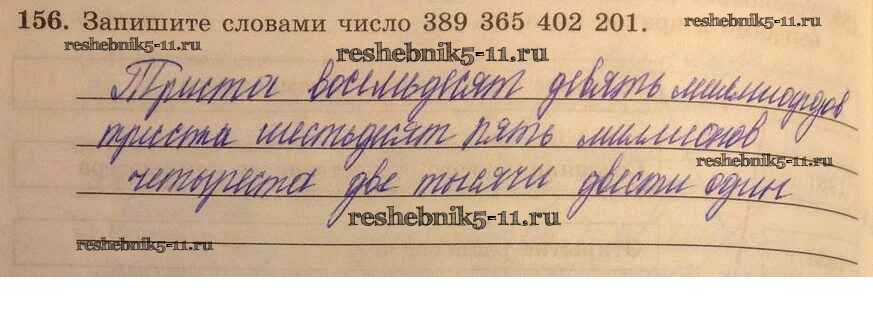 156. Запишите словами число 389 365 402 201.
reshebnik5-11.ru
reshebnik5-11.ru
Триста восемьдесят девять миллиардов
триста шестьдесят пять миллионов
reshebnik5-11.ru
четыреста две тысячи двести один
reshebnik5-11.ru
reshebnik5-11.ru